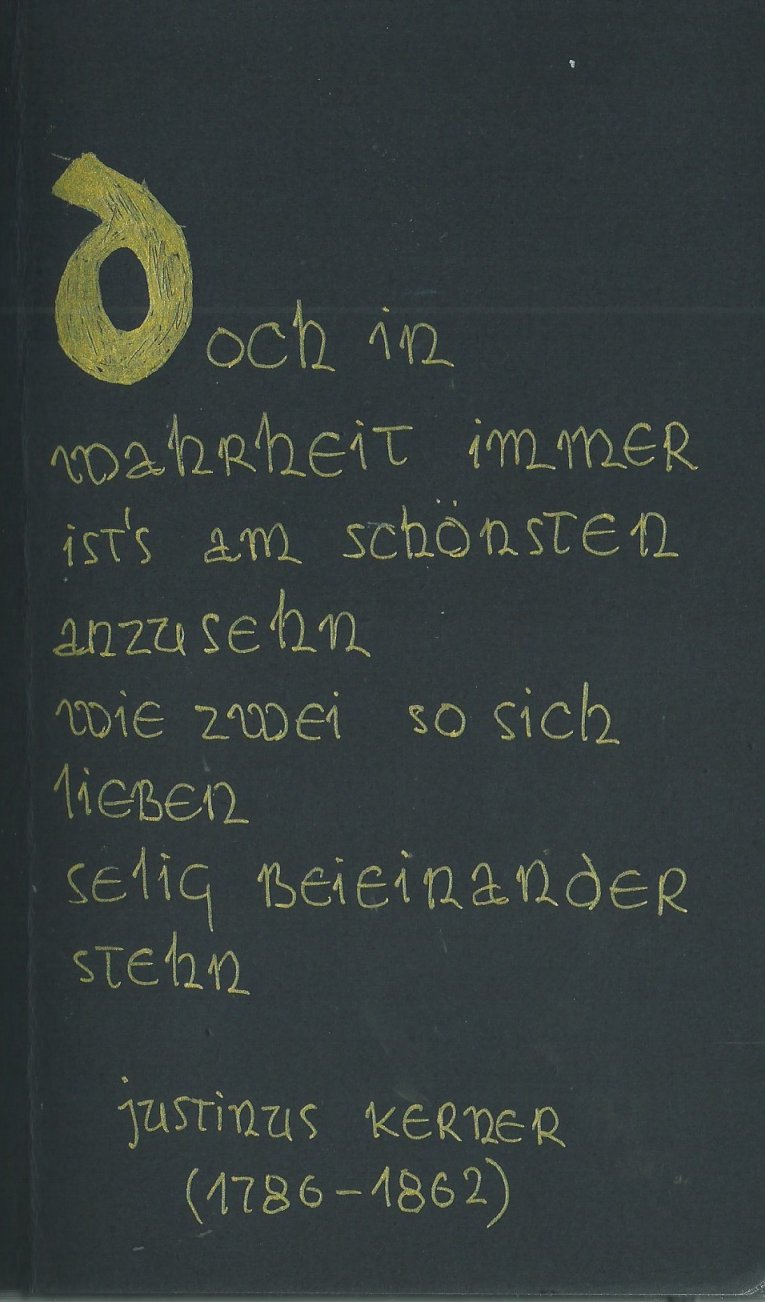 Doch in
wahrheit immer
ist's am schönsten
anzusehn
wie zwei so sich
lieben
selig beieinander
stehn
justinus kerner
(1786-1862)